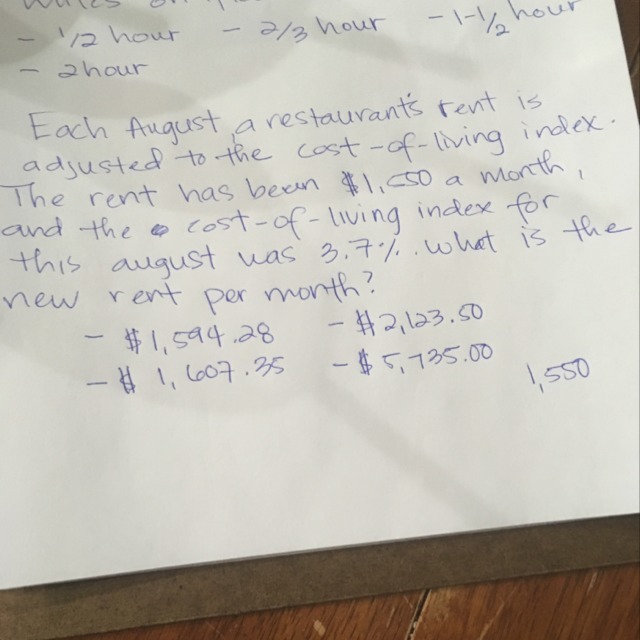 - 1/2 hour - 2/3 hour - 1-1/2 hour
- 2hour
Each August a restaurant's rent is
adjusted to the cost-of-living index.
The rent has been $1,550 a month,
and the cost-of-living index for
this august was 3.7%. what is the
new rent per month?
- $1,594.28 - $2,123.50
- $1,607.35 - $5,735.00
1,550